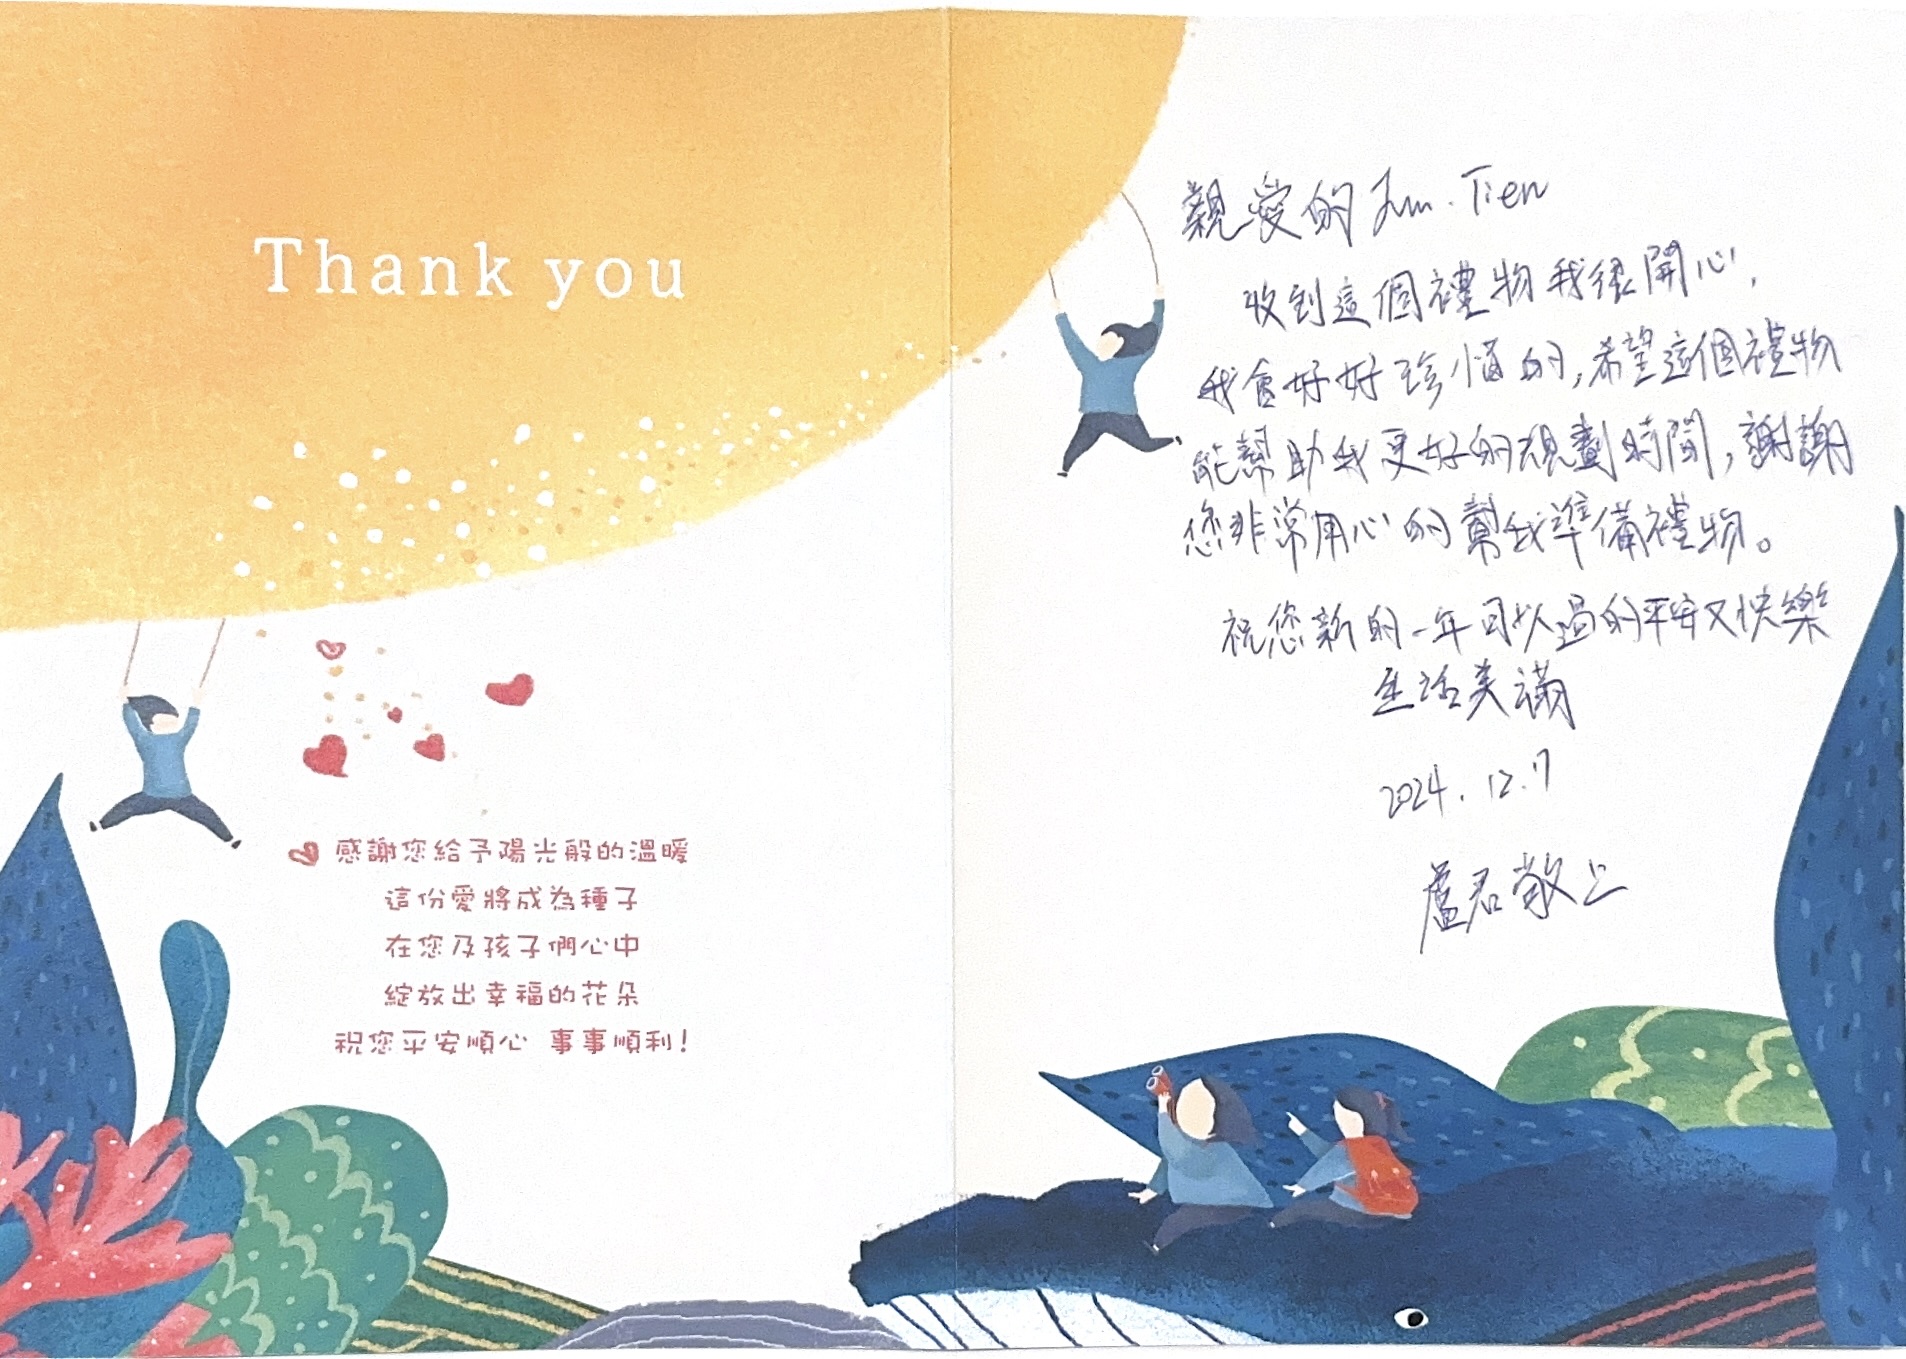 Thank you
感謝您給予陽光般的溫暖
這份愛將成為種子
在您及孩子們心中
綻放出幸福的花朵
祝您平安順心 事事順利!
親愛的 Jun. Tien
收到這個禮物我很開心,
我會好好珍惜的,希望這個禮物
能幫助我更好的規劃時間,謝謝
您非常用心的幫我準備禮物。
祝您新的一年可以過的平安又快樂
生活美滿
2024.12.7
盧君敬上